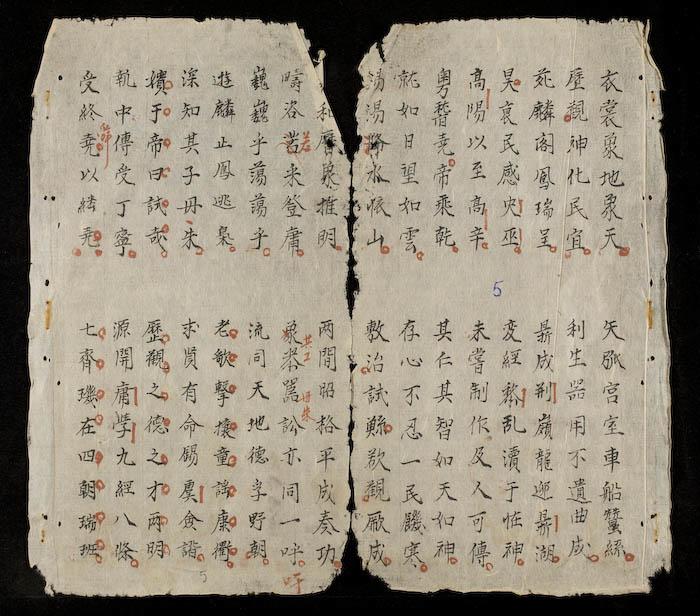 衣裳象地象天
矢弧宮室車船蠶絲
歷觀神化民宜
利生器用不遺曲成
苑麟閣鳳瑞呈
鼎成荆嶺龍迎鼎湖
昊衰民惑史巫
変經黎乱瀆于怪神
高陽以至高辛
未嘗制作及人可傳
粤稽堯帝乘乾
其仁其智如天如神
就如日望如雲
存心不忍一民饑寒
湯湯降水懷山
敷治試鯀欲觀厥成
和曆象推明
两間昭格平成奏功
疇洛 若来登庸
象恭嚚訟亦同一吁
共工
丹朱
吁
巍巍乎蕩蕩乎
流同天地德孚野朝
遊麟止鳳逃梟
老歌擊壤童謠康衢
深知其子丹朱
求賢有命錫虞僉諧
嬪于帝曰試哉
歷觀之德之才两明
執中傳受丁寧
源開庸學九經八條
受終堯以紹堯
舜
七齊璣在四朝瑞班
5
5